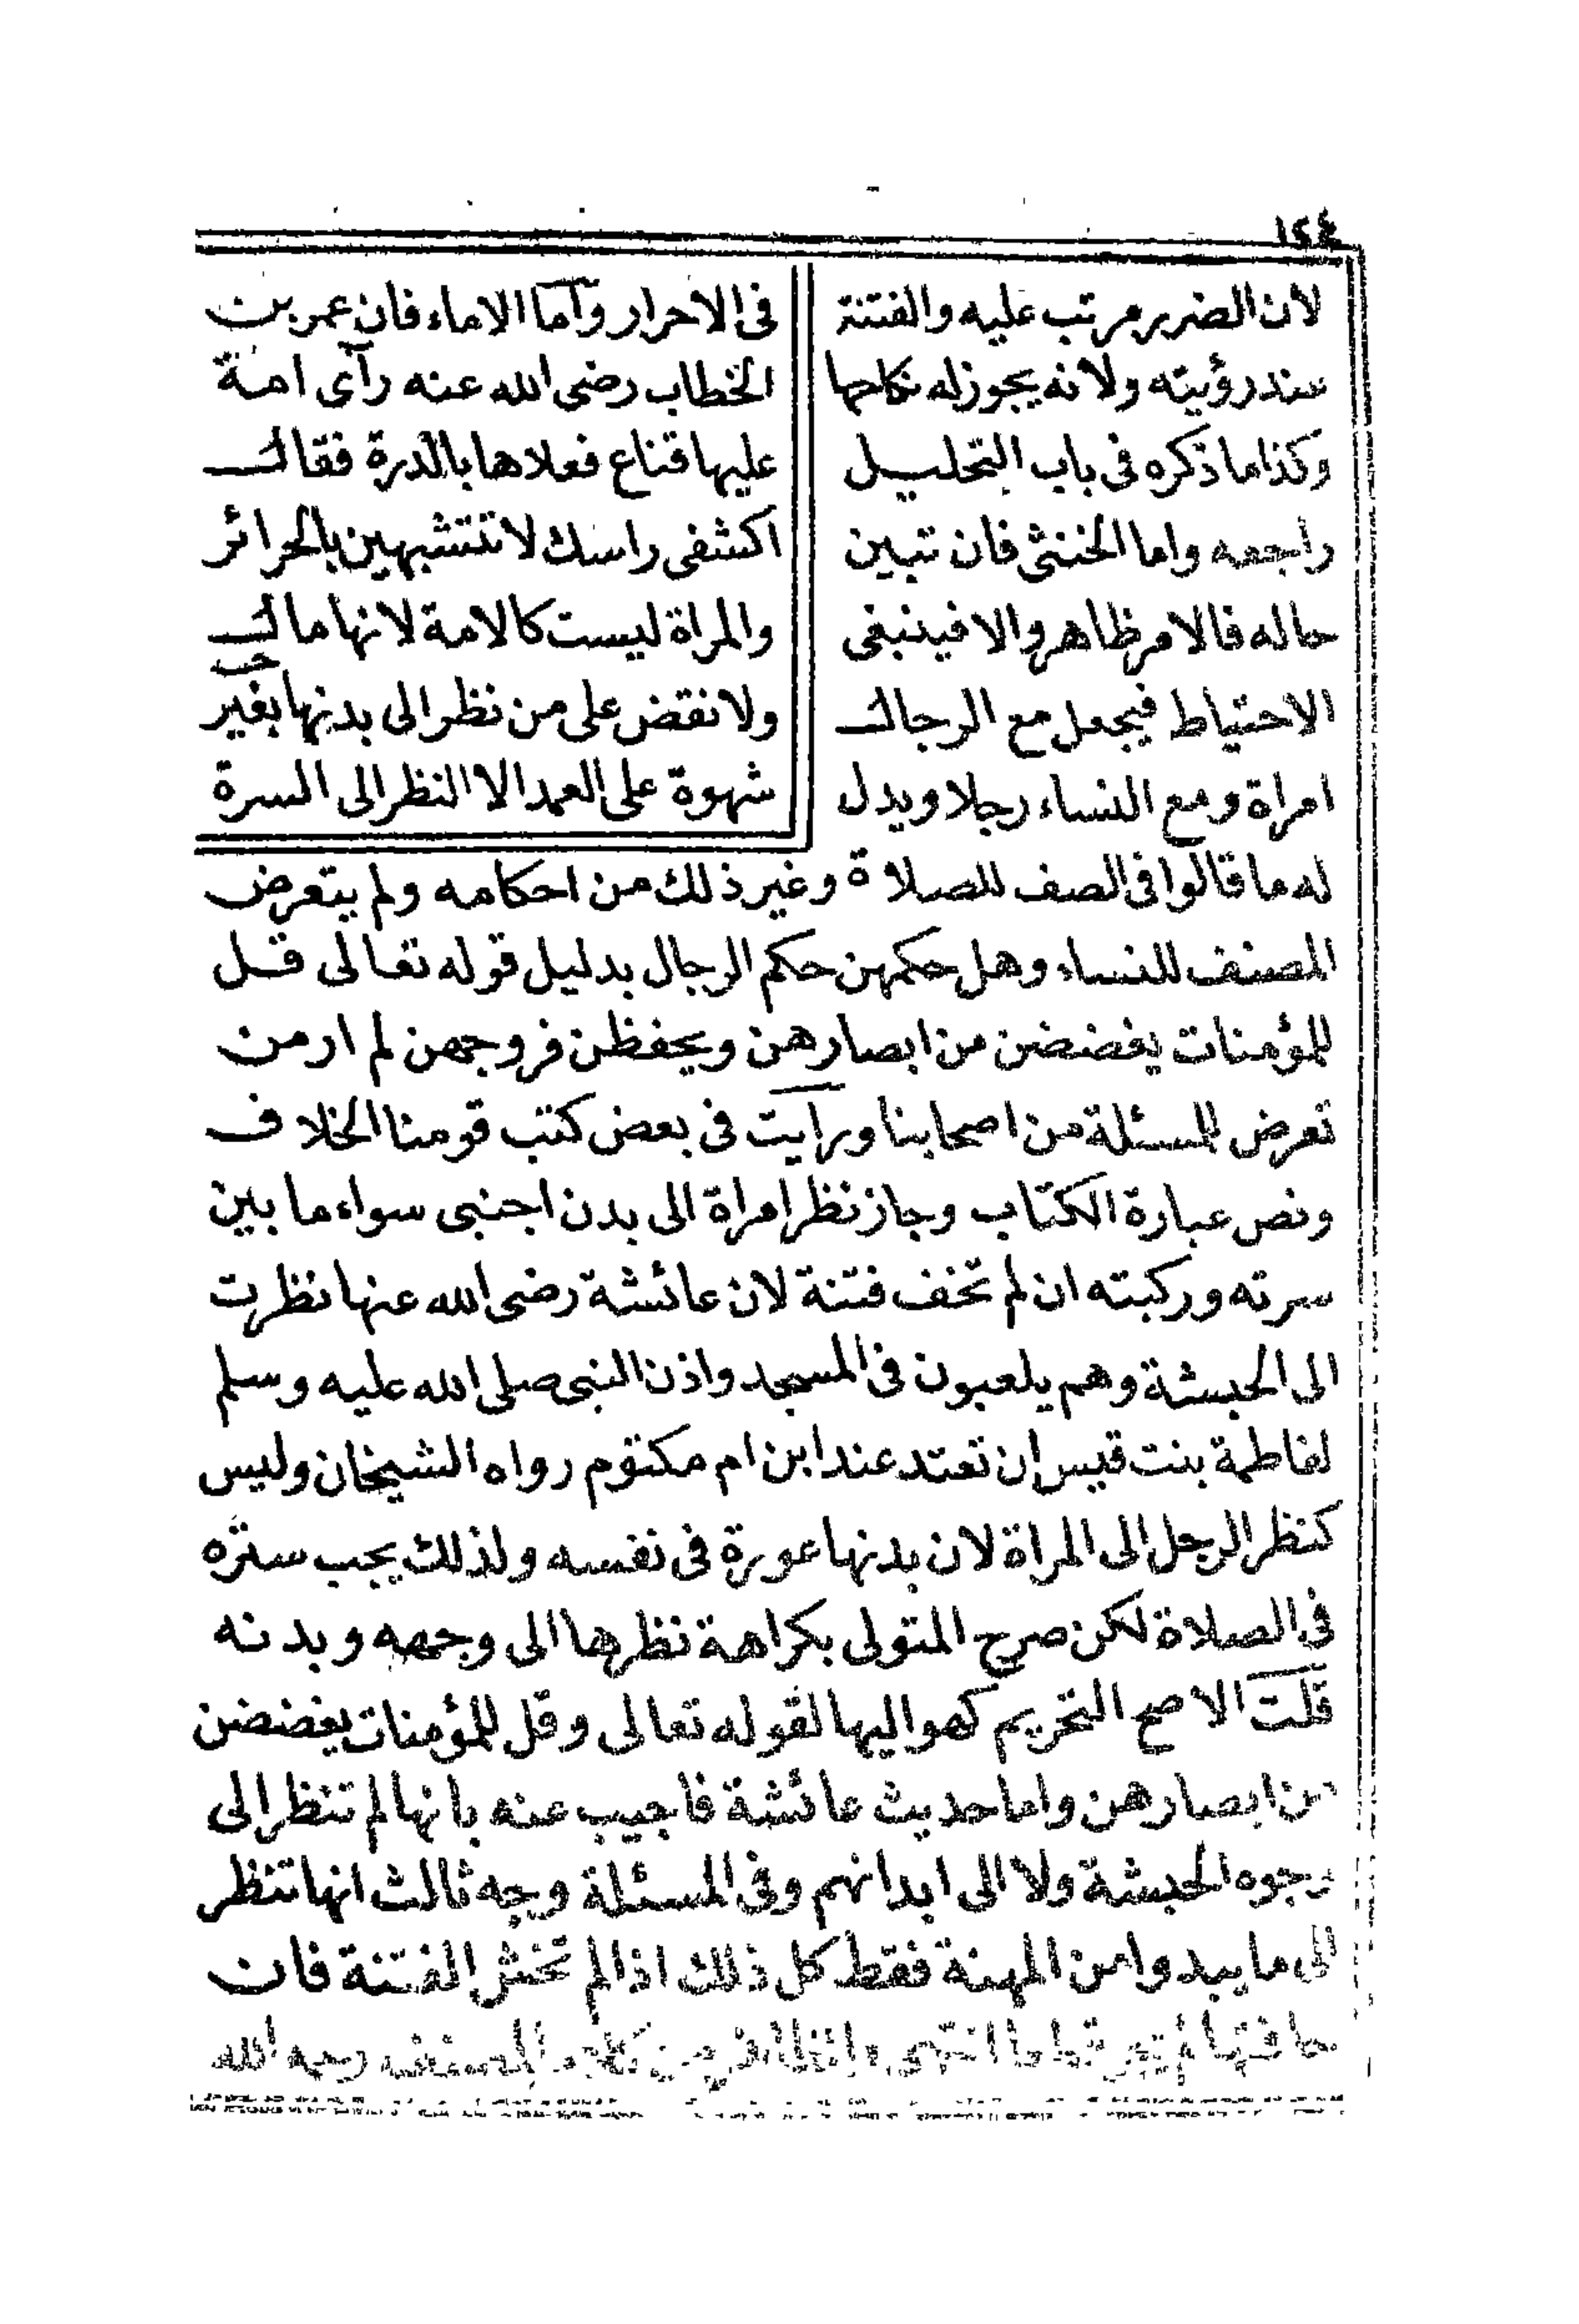 ١٤٤
لان الضرر مرتب عليه والفتنة
عند رؤيته ولانه يجوز له نكاحها
وكذا ما ذكره فى باب التحليل
راجعه واما الخنثى فان تبين
حاله فالامر ظاهر والا فينبغى
الاحتياط فيجعل مع الرجال
امراة ومع النساء رجلا ويدل
فى الاحرار واما الاماء فان عمر بن
الخطاب رضى الله عنه رآى امة
عليها قناع فعلاها بالدرة فقال
اكشفى راسك لا تتشبهين بالحرائر
والمراة ليست كالامة لانها مال
ولا نقض على من نظر الى بدنها بغير
شهوة على العمد الا النظر الى السرة
له ما قالوا فى الصف للصلاة وغير ذلك من احكامه ولم يتعرض
المصنف للنساء وهل حكمهن حكم الرجال بدليل قوله تعالى قل
للمؤمنات يغضضن من ابصارهن ويحفظن فروجهن لم ار من
تعرض للمسئلة من اصحابنا ورايت فى بعض كتب قومنا الخلاف
ونص عبارة الكتاب وجاز نظر امراة الى بدن اجنبى سواء ما بين
سرته وركبته ان لم تخف فتنة لان عائشة رضى الله عنها نظرت
الى الحبشة وهم يلعبون فى المسجد واذن النبى صلى الله عليه وسلم
لفاطمة بنت قيس ان تعتد عند ابن ام مكتوم رواه الشيخان وليس
كنظر الرجل الى المراة لان بدنها عورة فى نفسه ولذلك يجب ستره
فى الصلاة لكن صرح المتولى بكراهة نظرها الى وجهه وبدنه
قلت الاصح التحريم كهو اليها لقوله تعالى وقل للمؤمنات يغضضن
من ابصارهن واما حديث عائشة فاجيب عنه بانها لم تنظر الى
وجوه الحبشة ولا الى ابدانهم وفى المسئلة وجه ثالث انها تنظر
الى ما يبدوا من المهنة فقط كل ذلك اذا لم تخش الفتنة فان
المصنف رحمه الله